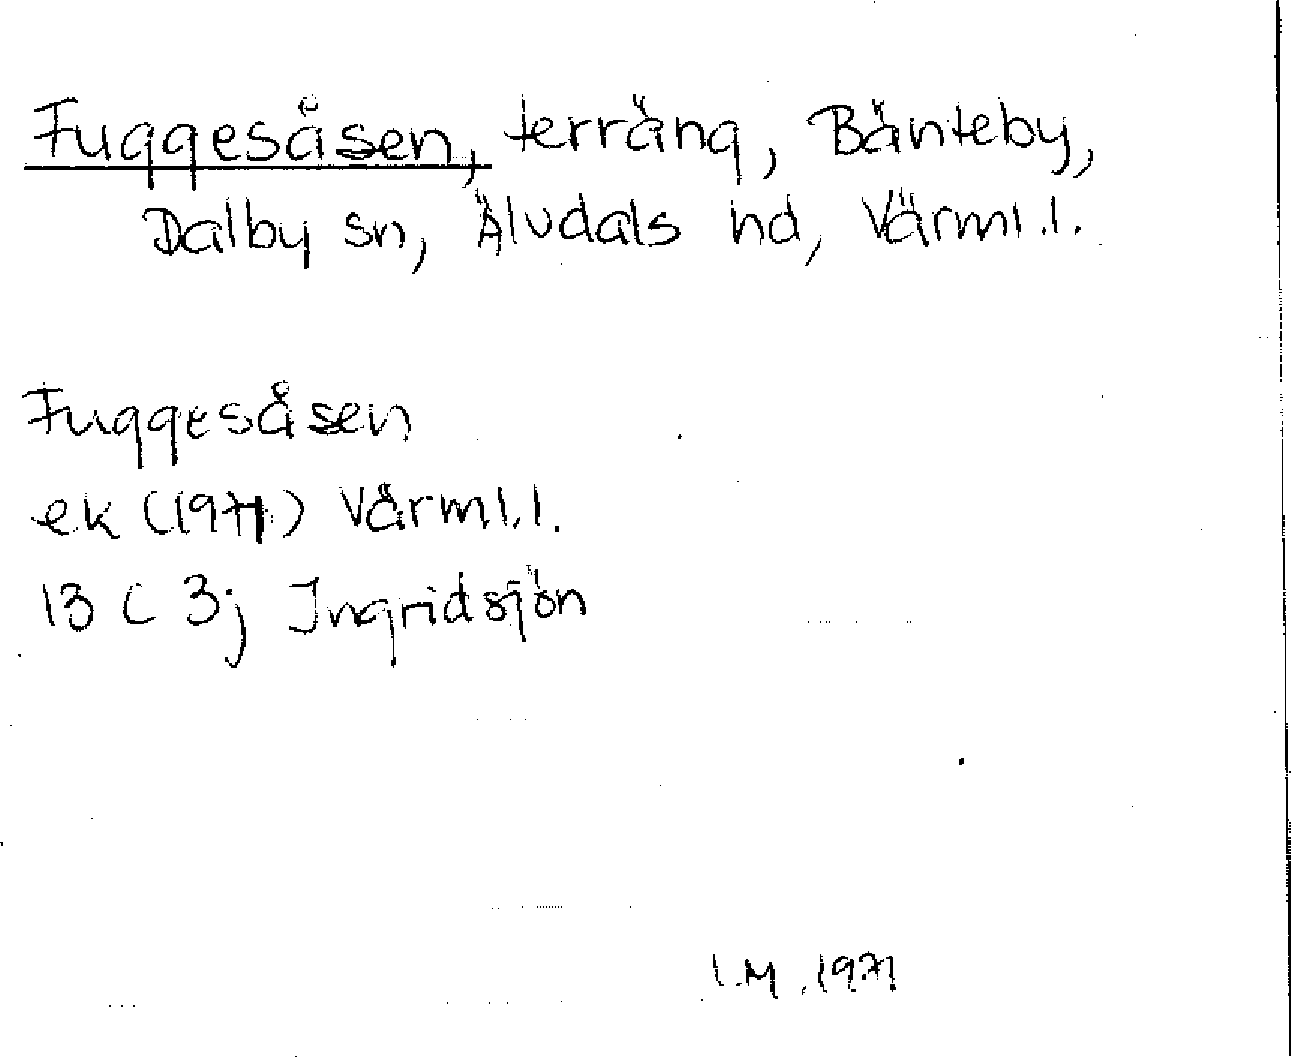 Fuggesåsen, terräng, Bänteby,
Dalby sn, Älvdals hd, Värml.l.
Fuggesåsen
ek (1971) Värml.l.
13 C 3j Ingridsjön
I.M. 1971